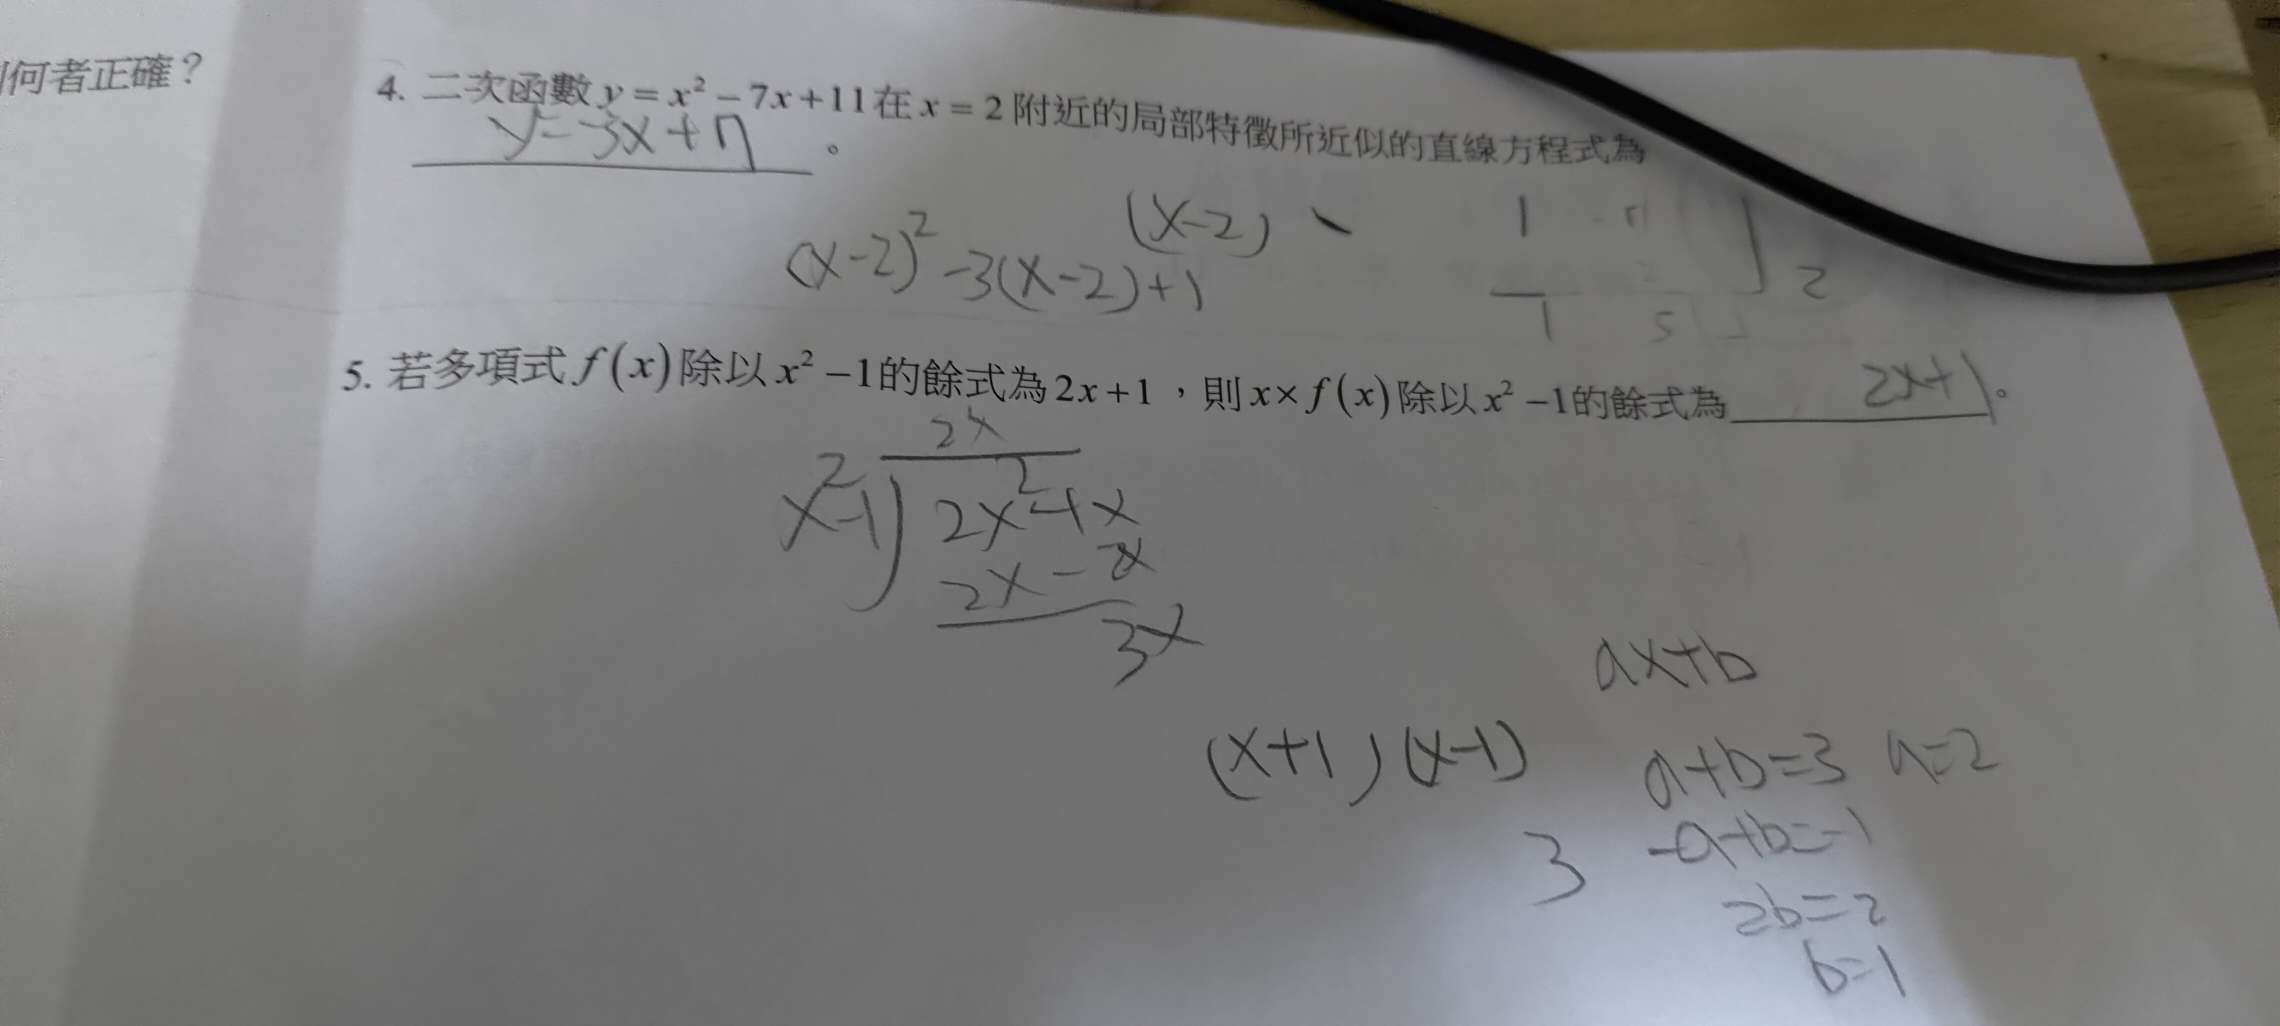 何者正確？
4. 二次函數 y = x² − 7x + 11 在 x = 2 附近的局部特徵所近似的直線方程式為
y=-3x+7 。
(x-2)
(x-2)² -3(x-2)+1
1
2
1 5
5. 若多項式 f(x) 除以 x² − 1 的餘式為 2x + 1 ，則 x × f(x) 除以 x² − 1 的餘式為 2x+1 。
2x
x²-1 2x²+x
2x - 2
3x
ax+b
(x+1)(x-1)
a+b=3 a=2
3 -a+b=-1
2b=2
b=1